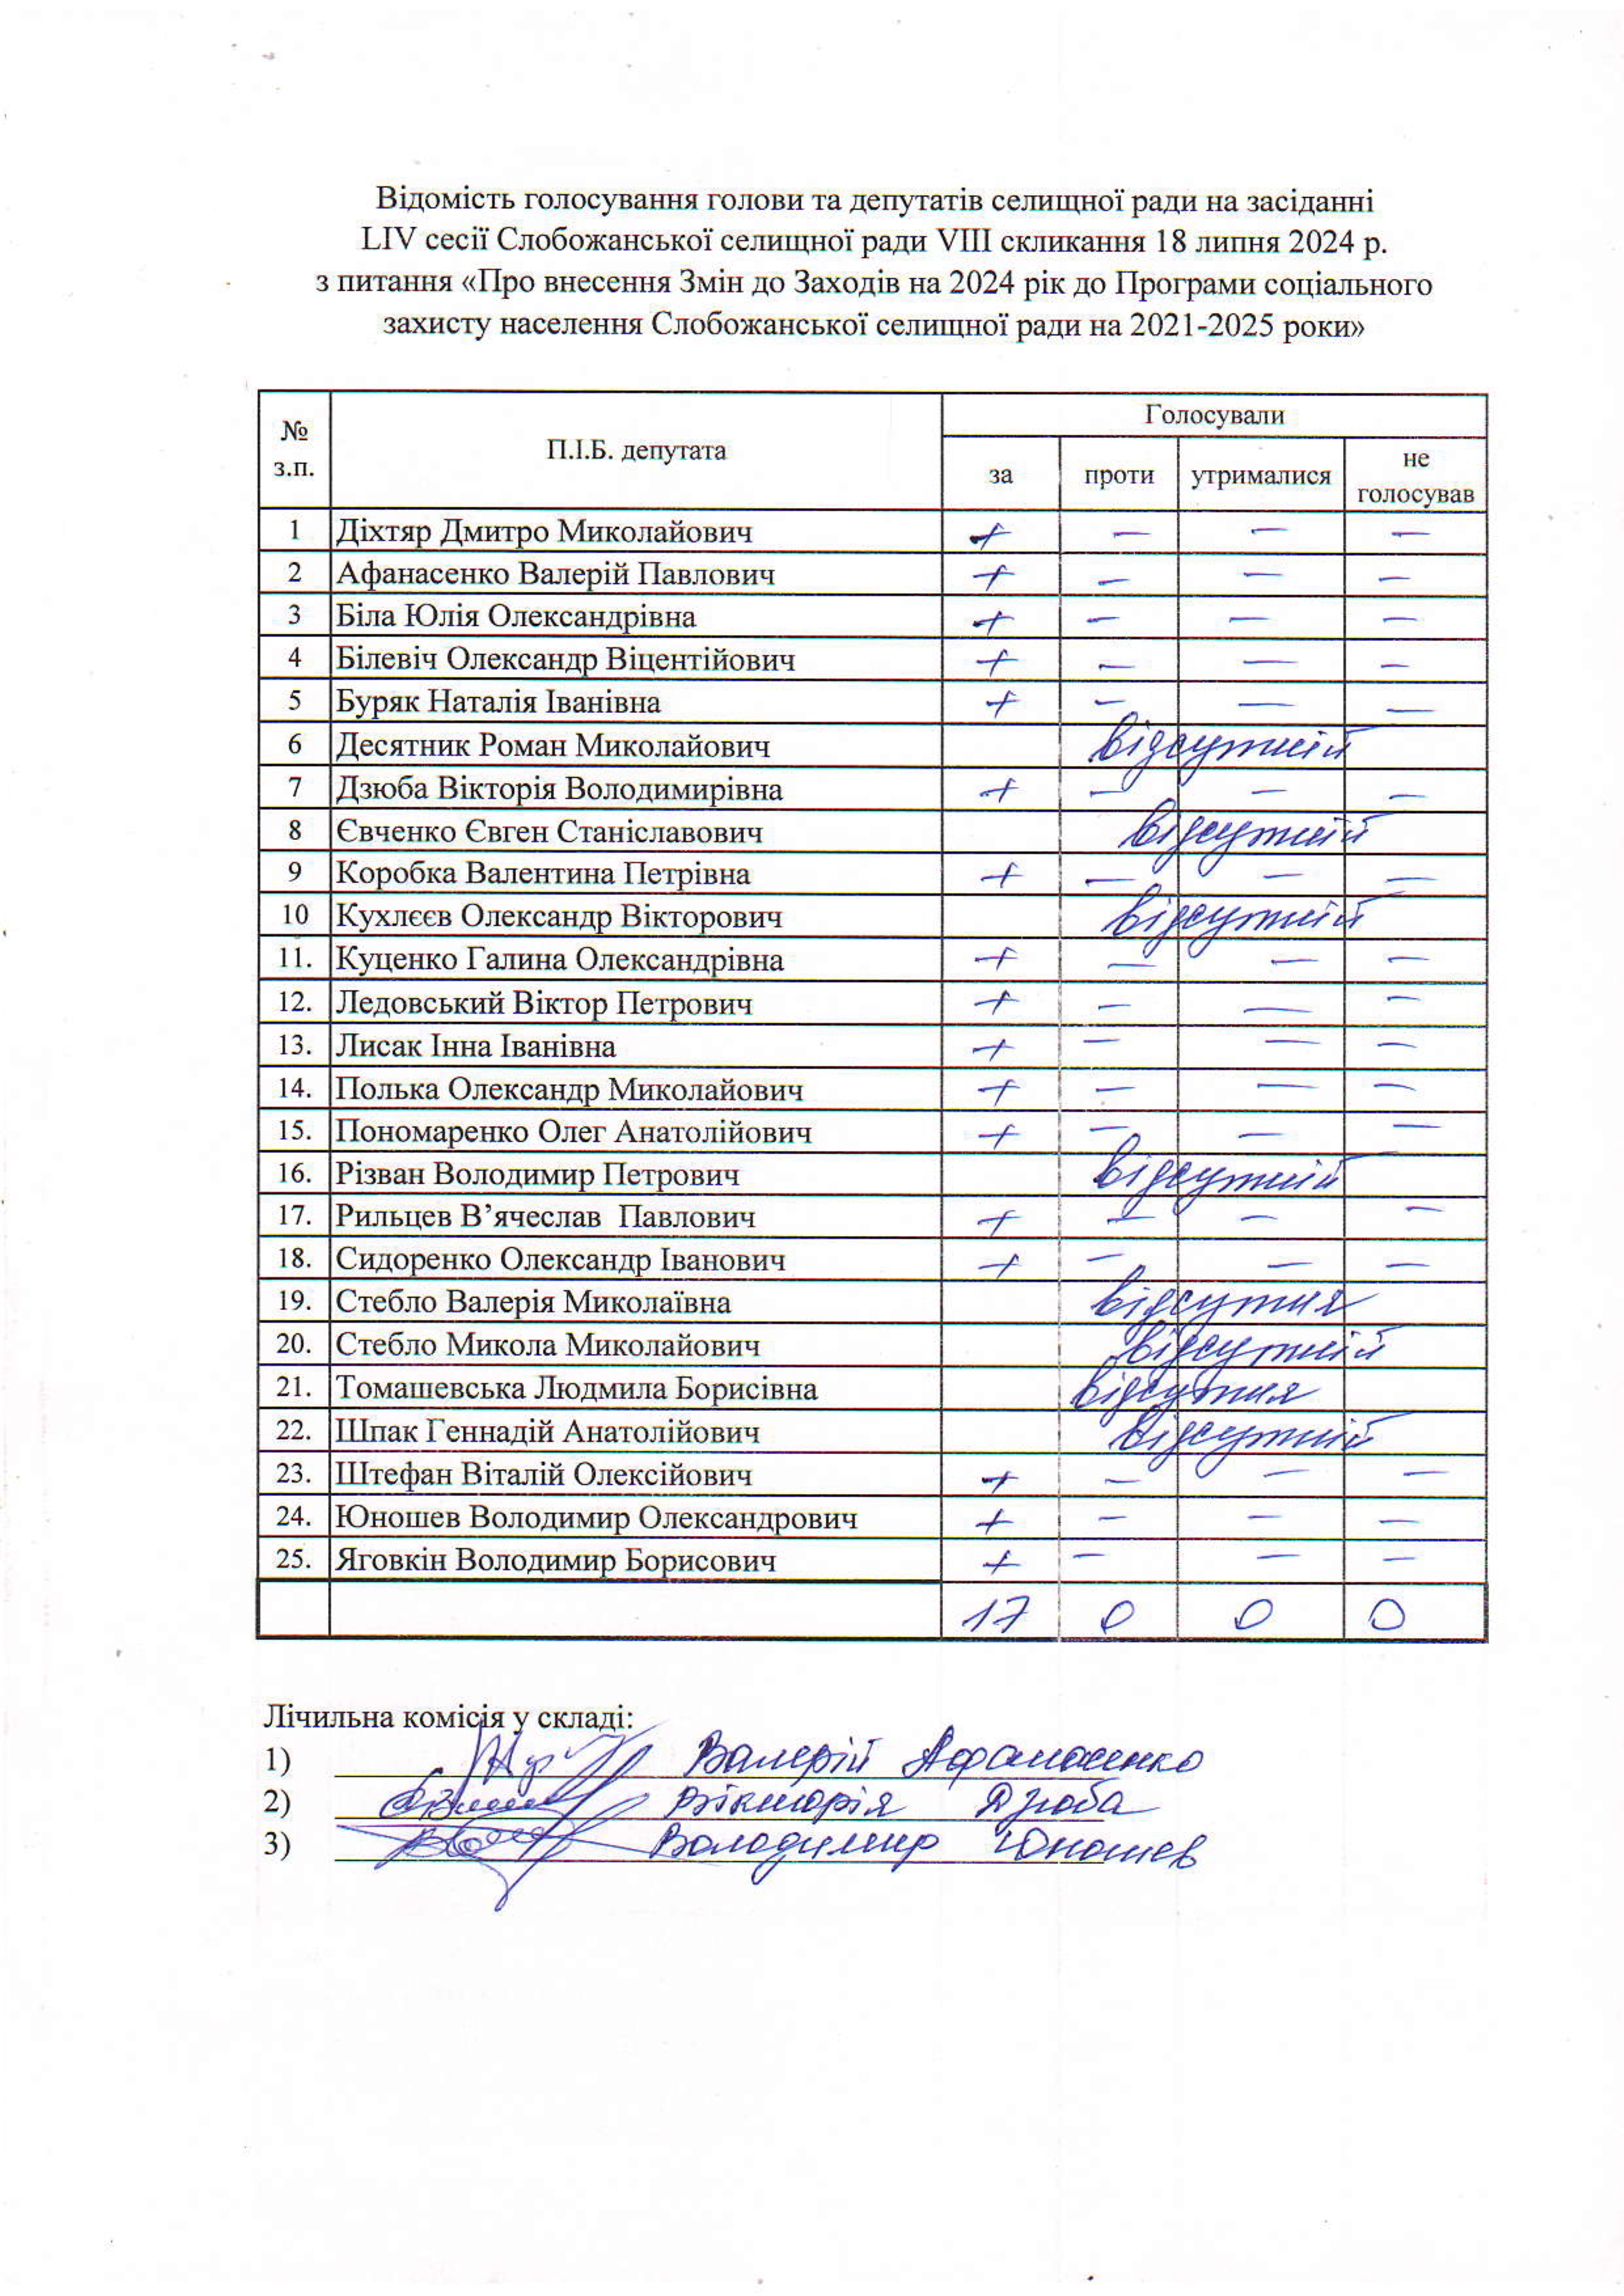 Відомість голосування голови та депутатів селищної ради на засіданні
LIV сесії Слобожанської селищної ради VIII скликання 18 липня 2024 р.
з питання «Про внесення Змін до Заходів на 2024 рік до Програми соціального
захисту населення Слобожанської селищної ради на 2021-2025 роки»
№ з.п. П.І.Б. депутата Голосували
за проти утрималися не голосував
1 Діхтяр Дмитро Миколайович + — — —
2 Афанасенко Валерій Павлович + — — —
3 Біла Юлія Олександрівна + — — —
4 Білевіч Олександр Віцентійович + — — —
5 Буряк Наталія Іванівна + — — —
6 Десятник Роман Миколайович відсутній
7 Дзюба Вікторія Володимирівна + — — —
8 Євченко Євген Станіславович відсутній
9 Коробка Валентина Петрівна + — — —
10 Кухлєєв Олександр Вікторович відсутній
11. Куценко Галина Олександрівна + — — —
12. Ледовський Віктор Петрович + — — —
13. Лисак Інна Іванівна + — — —
14. Полька Олександр Миколайович + — — —
15. Пономаренко Олег Анатолійович + — — —
16. Різван Володимир Петрович відсутній
17. Рильцев В’ячеслав Павлович + — — —
18. Сидоренко Олександр Іванович + — — —
19. Стебло Валерія Миколаївна відсутня
20. Стебло Микола Миколайович відсутній
21. Томашевська Людмила Борисівна відсутня
22. Шпак Геннадій Анатолійович відсутній
23. Штефан Віталій Олексійович + — — —
24. Юношев Володимир Олександрович + — — —
25. Яговкін Володимир Борисович + — — —
17 0 0 0
Лічильна комісія у складі:
1) Валерій Афанасенко
2) Вікторія Дзюба
3) Володимир Юношев